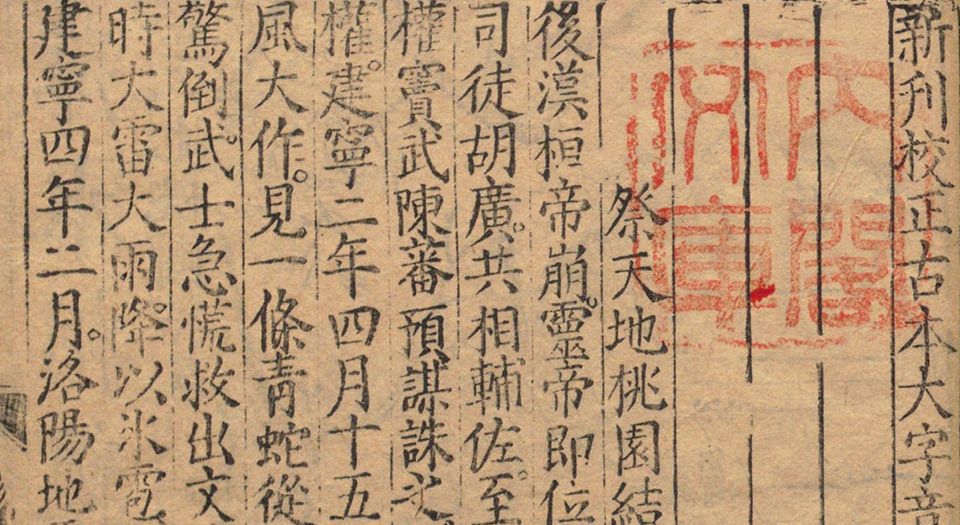 新刊校正古本大字音
內閣
文庫
祭天地桃園結
後漢桓帝崩。靈帝即位
司徒胡廣。共相輔佐。至
權竇武陳蕃預謀誅之
權。建寧二年四月十五
風大作。見一條青蛇從
驚倒。武士急慌救出文
時大雷大雨。降以氷雹
建寧四年二月。洛陽地